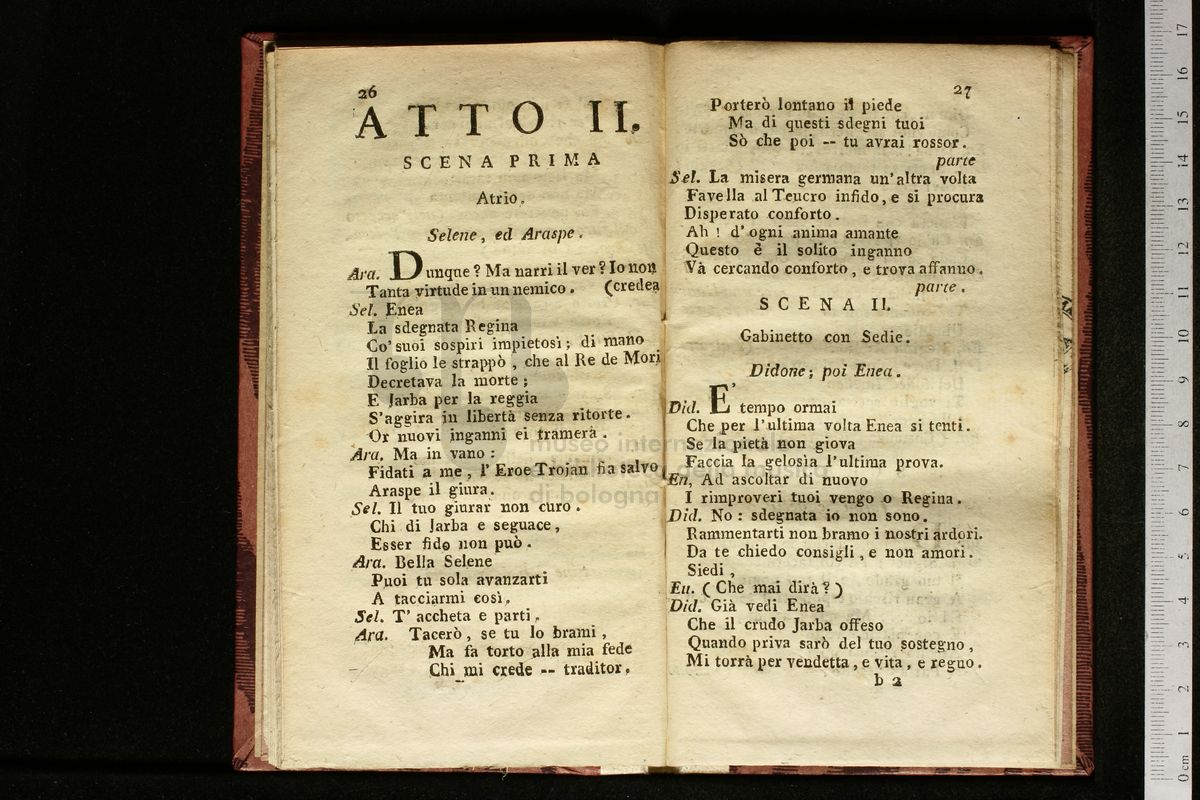 26
ATTO II.
SCENA PRIMA
Atrio.
Selene, ed Araspe.
Ara. Dunque? Ma narri il ver? Io non
Tanta virtude in un nemico. (credea
Sel. Enea
La sdegnata Regina
Co' suoi sospiri impietosì; di mano
Il foglio le strappò, che al Re de Mori
Decretava la morte;
E Jarba per la reggia
S'aggira in libertà senza ritorte.
Or nuovi inganni ei tramerà.
Ara. Ma in vano:
Fidati a me, l'Eroe Trojan fia salvo
Araspe il giura.
Sel. Il tuo giurar non curo.
Chi di Jarba e seguace,
Esser fido non può.
Ara. Bella Selene
Puoi tu sola avanzarti
A tacciarmi così.
Sel. T' accheta e parti.
Ara. Tacerò, se tu lo brami,
Ma fa torto alla mia fede
Chi mi crede -- traditor.
27
Porterò lontano il piede
Ma di questi sdegni tuoi
Sò che poi -- tu avrai rossor.
parte
Sel. La misera germana un'altra volta
Favella al Teucro infido, e si procura
Disperato conforto.
Ah! d'ogni anima amante
Questo è il solito inganno
Và cercando conforto, e trova affanno.
parte.
SCENA II.
Gabinetto con Sedie.
Didone; poi Enea.
Did. E' tempo ormai
Che per l'ultima volta Enea si tenti.
Se la pietà non giova
Faccia la gelosìa l'ultima prova.
En, Ad ascoltar di nuovo
I rimproveri tuoi vengo o Regina.
Did. No: sdegnata io non sono.
Rammentarti non bramo i nostri ardori.
Da te chiedo consigli, e non amori.
Siedi,
En. (Che mai dirà?)
Did. Già vedi Enea
Che il crudo Jarba offeso
Quando priva sarò del tuo sostegno,
Mi torrà per vendetta, e vita, e regno.
b 2
museo internazionale
e biblioteca della musica
di bologna
17
16
15
14
13
12
11
10
9
8
7
6
5
4
3
2
1
0 cm